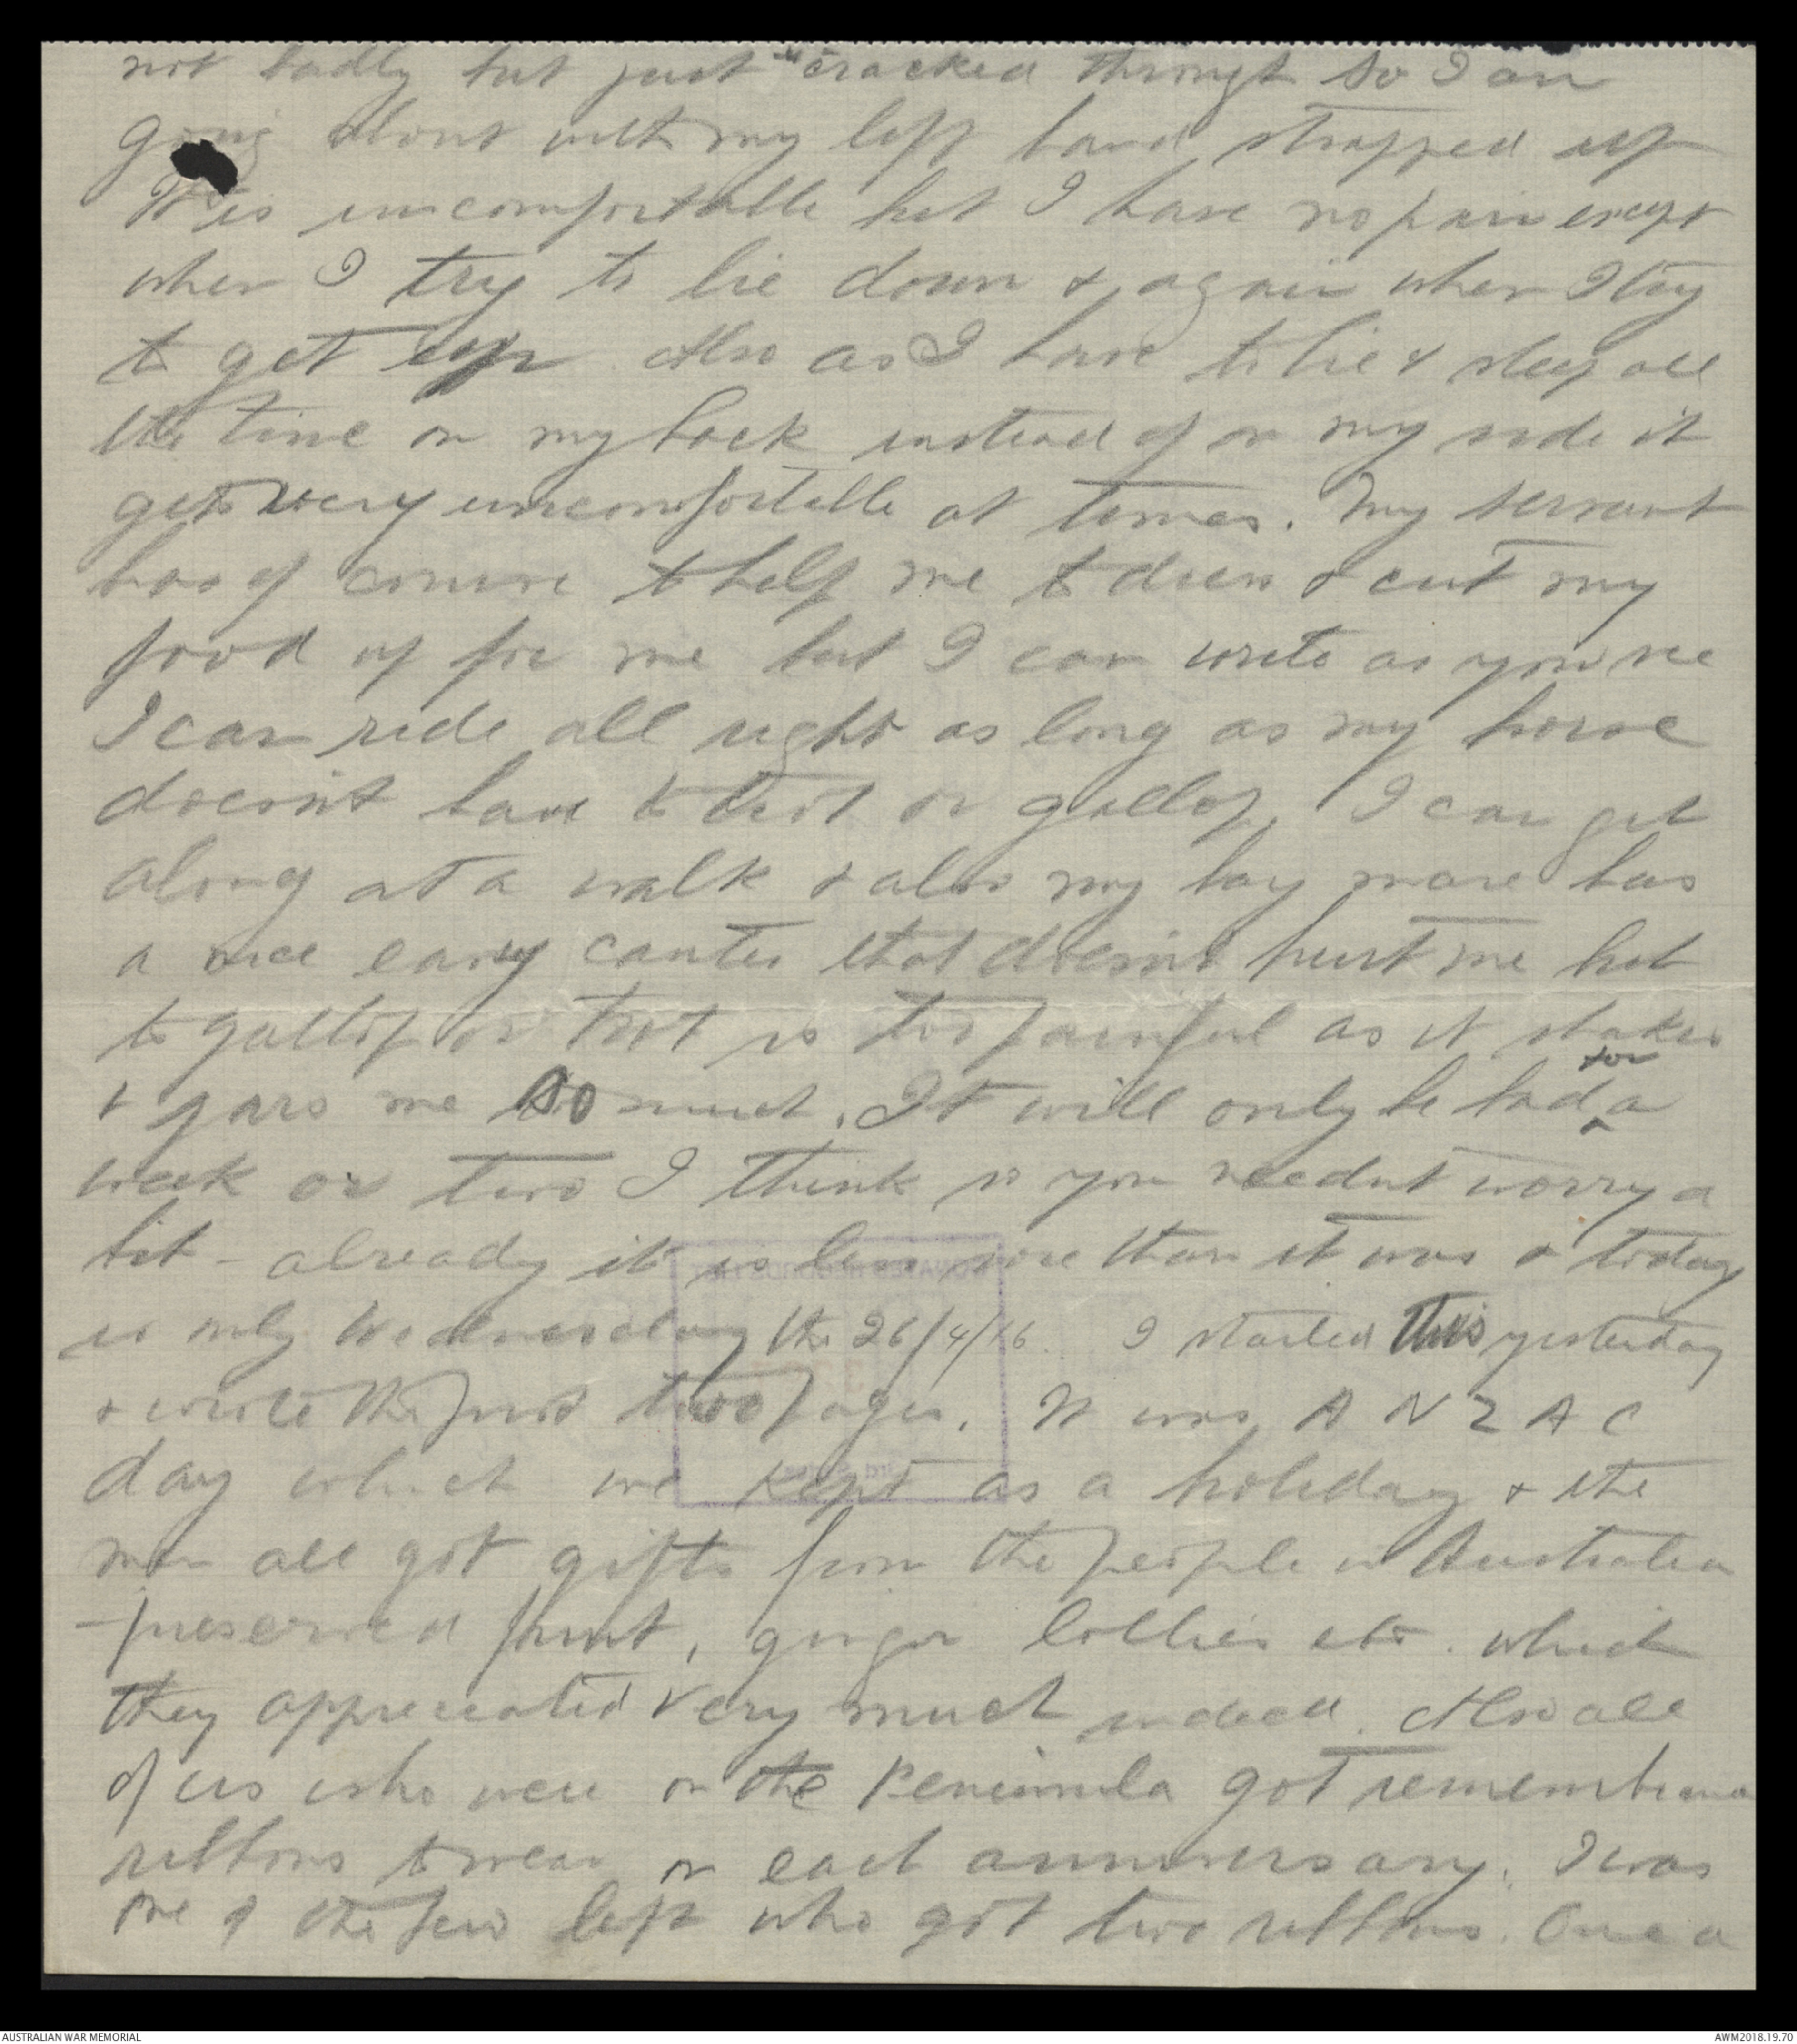 not badly but just "cracked through so I am
going about with my left hand strapped up
It is uncomfortable but I have no pain except
when I try to lie down & again when I try
to get up. Also as I have to lie & sleep all
the time on my back instead of on my side it
gets very uncomfortable at times. My servant
has of course to help me to dress & cut my
food up for me but I can write as you see
I can ride all right as long as my horse
doesn't have to trot or gallop. I can get
along at a walk & also my bay mare has
a nice easy canter that doesn't hurt me but
to gallop or trot is too painful as it shakes
& jars me so much. It will only be bad for a
week or two I think so you needn't worry a
bit - already it is less sore than it was & today
is only Wednesday the 26/4/16. I started this yesterday
& wrote the first two pages. It was A N Z A C
day which we kept as a holiday & the
men all got gifts from the people in Australia
- preserved fruit, ginger lollies etc. which
they appreciated very much indeed. Also all
of us who were on the Peninsula got remembrance
ribbons to wear on each anniversary. I was
one of the few left who got two ribbons. One a
AUSTRALIAN WAR MEMORIAL
AWM2018.19.70